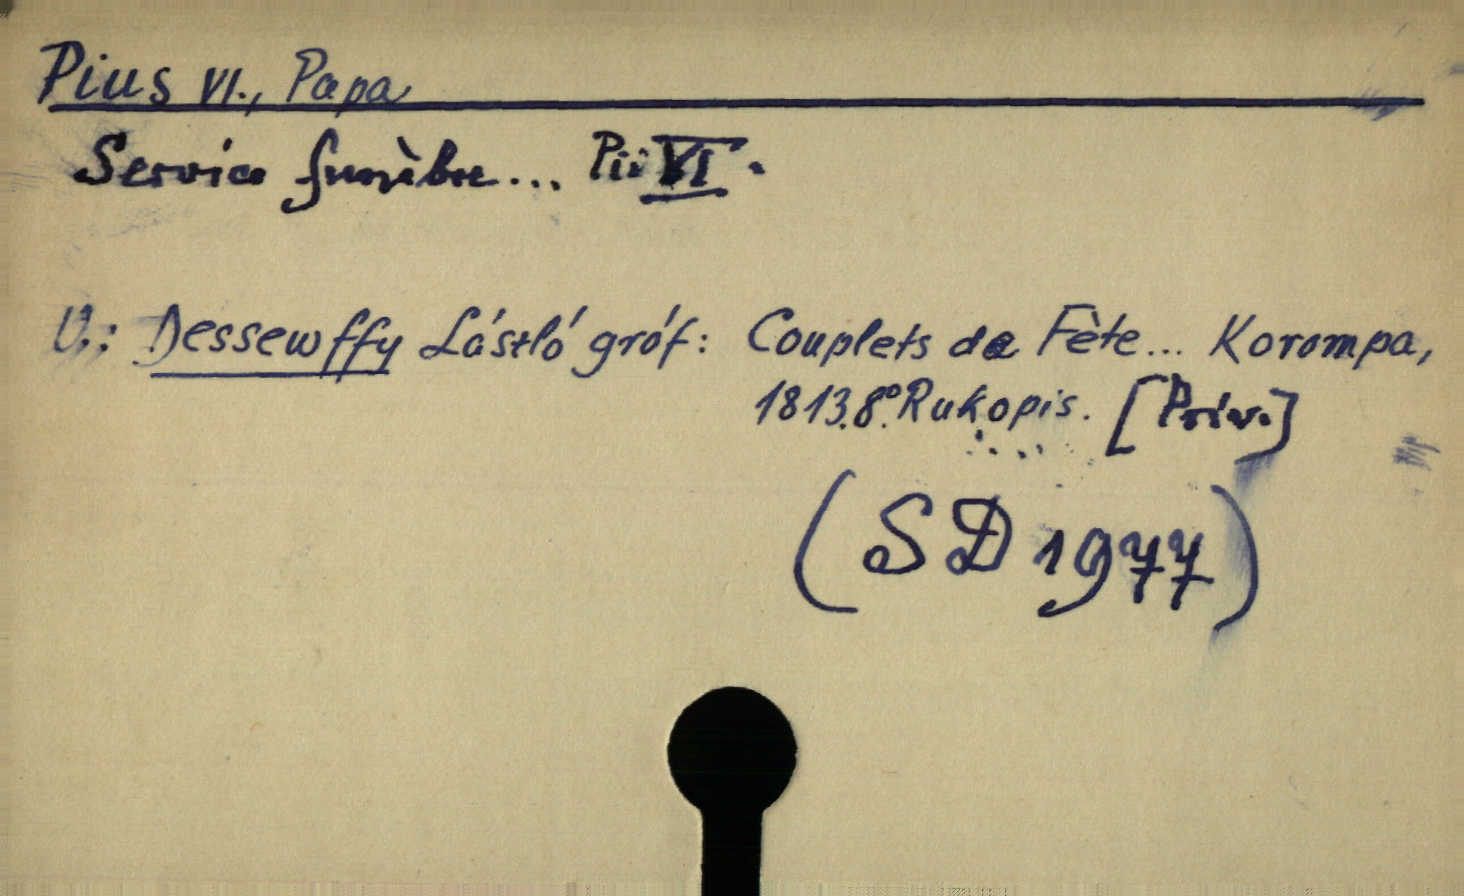 Pius VI., Papa
Service funèbre... Pii VI.
V.: Dessewffy László gróf: Couplets de Fète... Korompa,
1813. 8º. Rukopis. [Priv.]
(SD 1977)